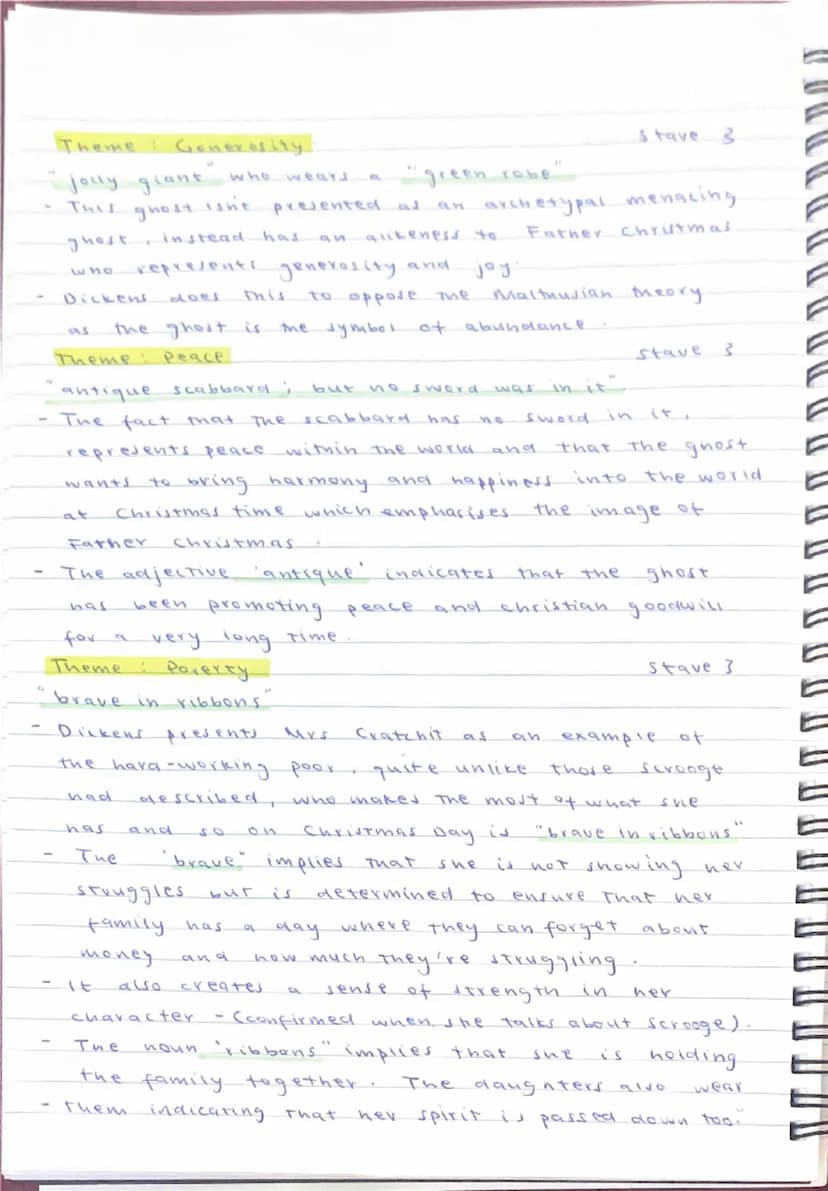 Theme : Generosity stave 3
"jolly giant" who wears a "green robe"
- This ghost isn't presented as an archetypal menacing
ghost, instead has an alikeness to Father Christmas
who represents generosity and joy.
- Dickens does this to oppose the Malthusian theory
as the ghost is the symbol of abundance.
Theme : Peace stave 3
"antique scabbard; but no sword was in it"
- The fact that the scabbard has no sword in it,
represents peace within the world and that the ghost
wants to bring harmony and happiness into the world
at Christmas time which emphasises the image of
Father Christmas.
- The adjective 'antique' indicates that the ghost
has been promoting peace and christian goodwill
for a very long time.
Theme : Poverty stave 3
"brave in ribbons"
- Dickens presents Mrs Cratchit as an example of
the hard-working poor, quite unlike those scrooge
had described, who makes the most of what she
has and so on Christmas Day is "brave in ribbons"
- The 'brave" implies that she is not showing her
struggles but is determined to ensure that her
family has a day where they can forget about
money and how much they're struggling.
- It also creates a sense of strength in her
character - (confirmed when she talks about scrooge).
- The noun 'ribbons" implies that she is holding
the family together. The daughters also wear
- them indicating that her spirit is passed down too."